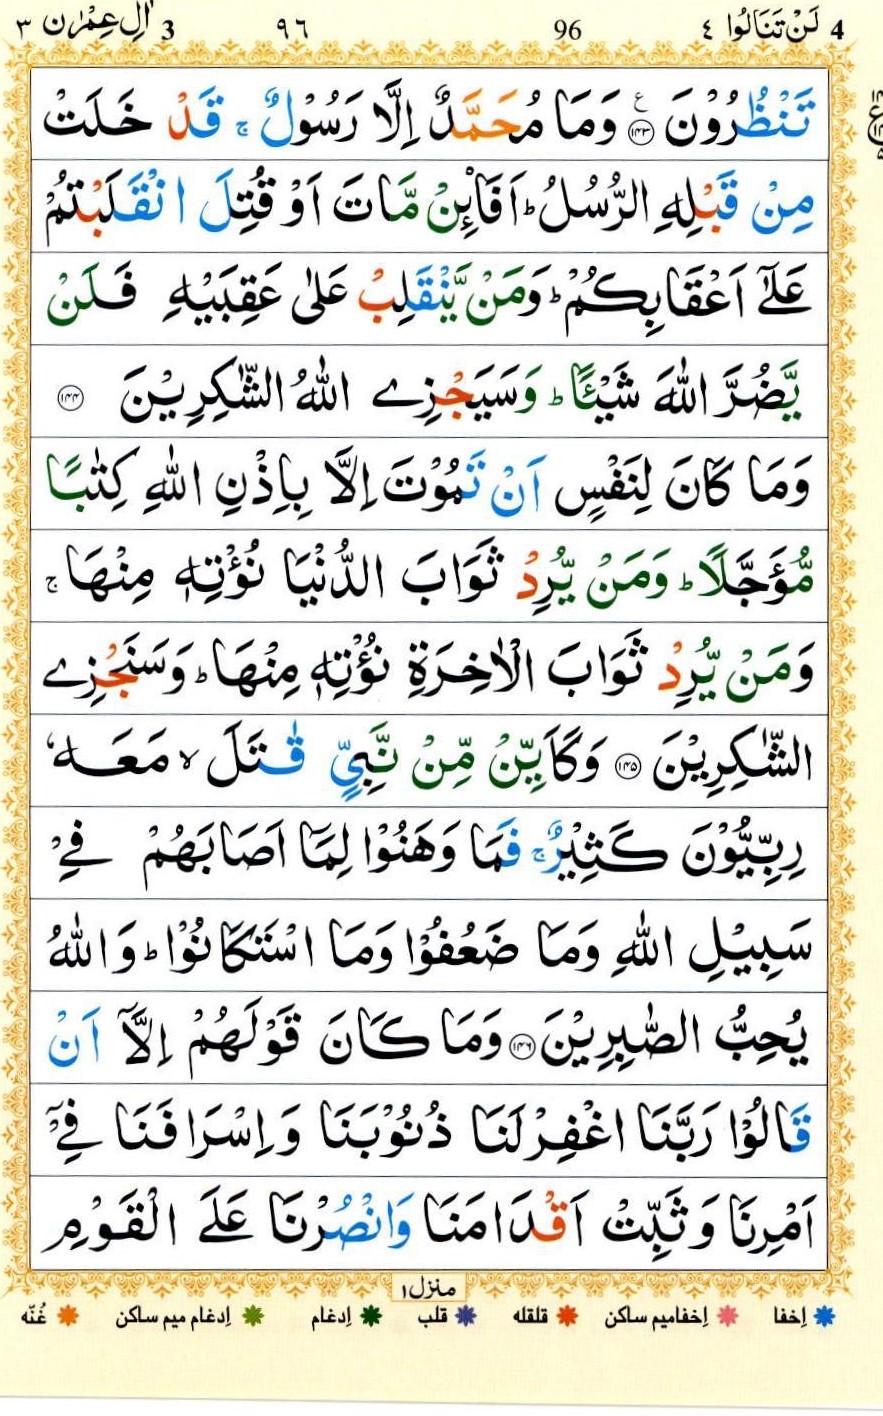 4 لَنْ تَنَالُوا ٤ 96 ٩٦ 3 اٰلِ عِمْرٰن ٣
تَنْظُرُوْنَ ﴿١٤٣﴾ ع وَمَا مُحَمَّدٌ اِلَّا رَسُوْلٌ ۚ قَدْ خَلَتْ
مِنْ قَبْلِهِ الرُّسُلُ ؕ اَفَا۟ئِنْ مَّاتَ اَوْ قُتِلَ انْقَلَبْتُمْ
عَلٰٓى اَعْقَابِكُمْ ؕ وَمَنْ يَّنْقَلِبْ عَلٰى عَقِبَيْهِ فَلَنْ
يَّضُرَّ اللّٰهَ شَيْـًٔا ؕ وَسَيَجْزِے اللّٰهُ الشّٰكِرِيْنَ ﴿١٤٤﴾
وَمَا كَانَ لِنَفْسٍ اَنْ تَمُوْتَ اِلَّا بِاِذْنِ اللّٰهِ كِتٰبًا
مُّؤَجَّلًا ؕ وَمَنْ يُّرِدْ ثَوَابَ الدُّنْيَا نُؤْتِهٖ مِنْهَا ۚ
وَمَنْ يُّرِدْ ثَوَابَ الْاٰخِرَةِ نُؤْتِهٖ مِنْهَا ؕ وَسَنَجْزِے
الشّٰكِرِيْنَ ﴿١٤٥﴾ وَكَاَيِّنْ مِّنْ نَّبِىٍّ قٰتَلَ ۙ مَعَهٗ
رِبِّيُّوْنَ كَثِيْرٌ ۚ فَمَا وَهَنُوْا لِمَاۤ اَصَابَهُمْ فِىْ
سَبِيْلِ اللّٰهِ وَمَا ضَعُفُوْا وَمَا اسْتَكَانُوْا ؕ وَاللّٰهُ
يُحِبُّ الصّٰبِرِيْنَ ﴿١٤٦﴾ وَمَا كَانَ قَوْلَهُمْ اِلَّاۤ اَنْ
قَالُوْا رَبَّنَا اغْفِرْ لَنَا ذُنُوْبَنَا وَاِسْرَافَنَا فِىْۤ
اَمْرِنَا وَثَبِّتْ اَقْدَامَنَا وَانْصُرْنَا عَلَى الْقَوْمِ
منزل ١
اِخفا اِخفامیم ساکن قلقله قلب اِدغام اِدغام میم ساکن غُنّه